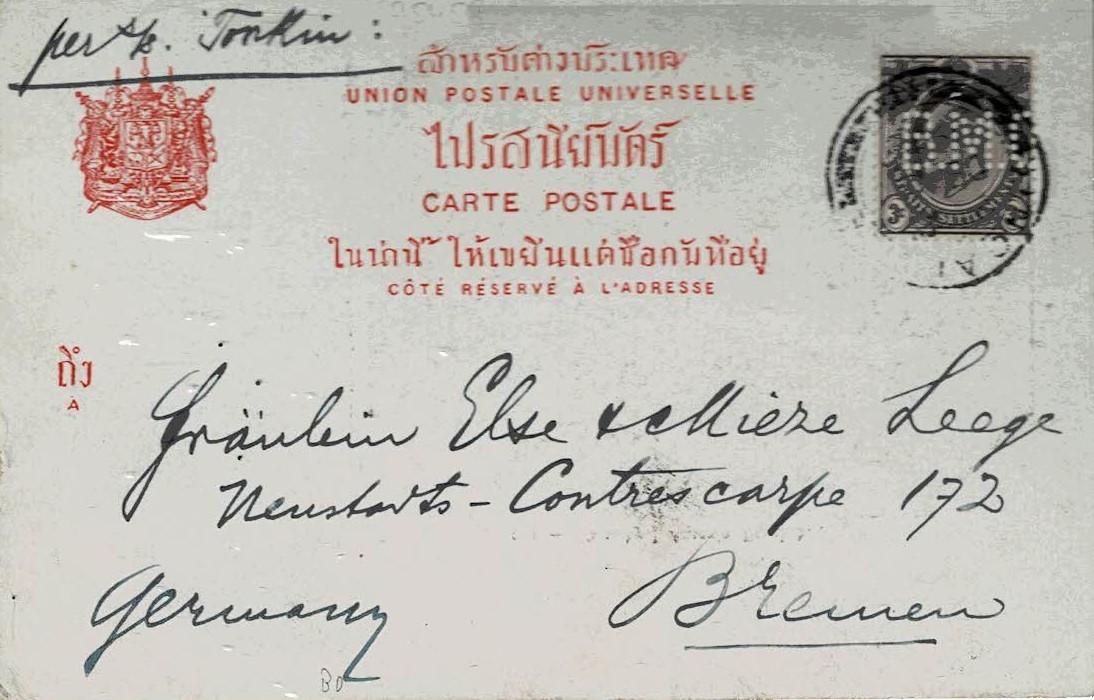 per s/s. Tonkin:
สำหรับต่างประเทศ
UNION POSTALE UNIVERSELLE
ไปรสนียบัตร์
CARTE POSTALE
ในน่านี้ ให้เขยีนแต่ชื่อกับที่อยู่
CÔTÉ RÉSERVÉ À L'ADRESSE
STRAITS SETTLEMENTS
3c
ถึง
A
Fräulein Else & Mieze Leege
Neustadts-Contrescarpe 172
Bremen
Germany
BD